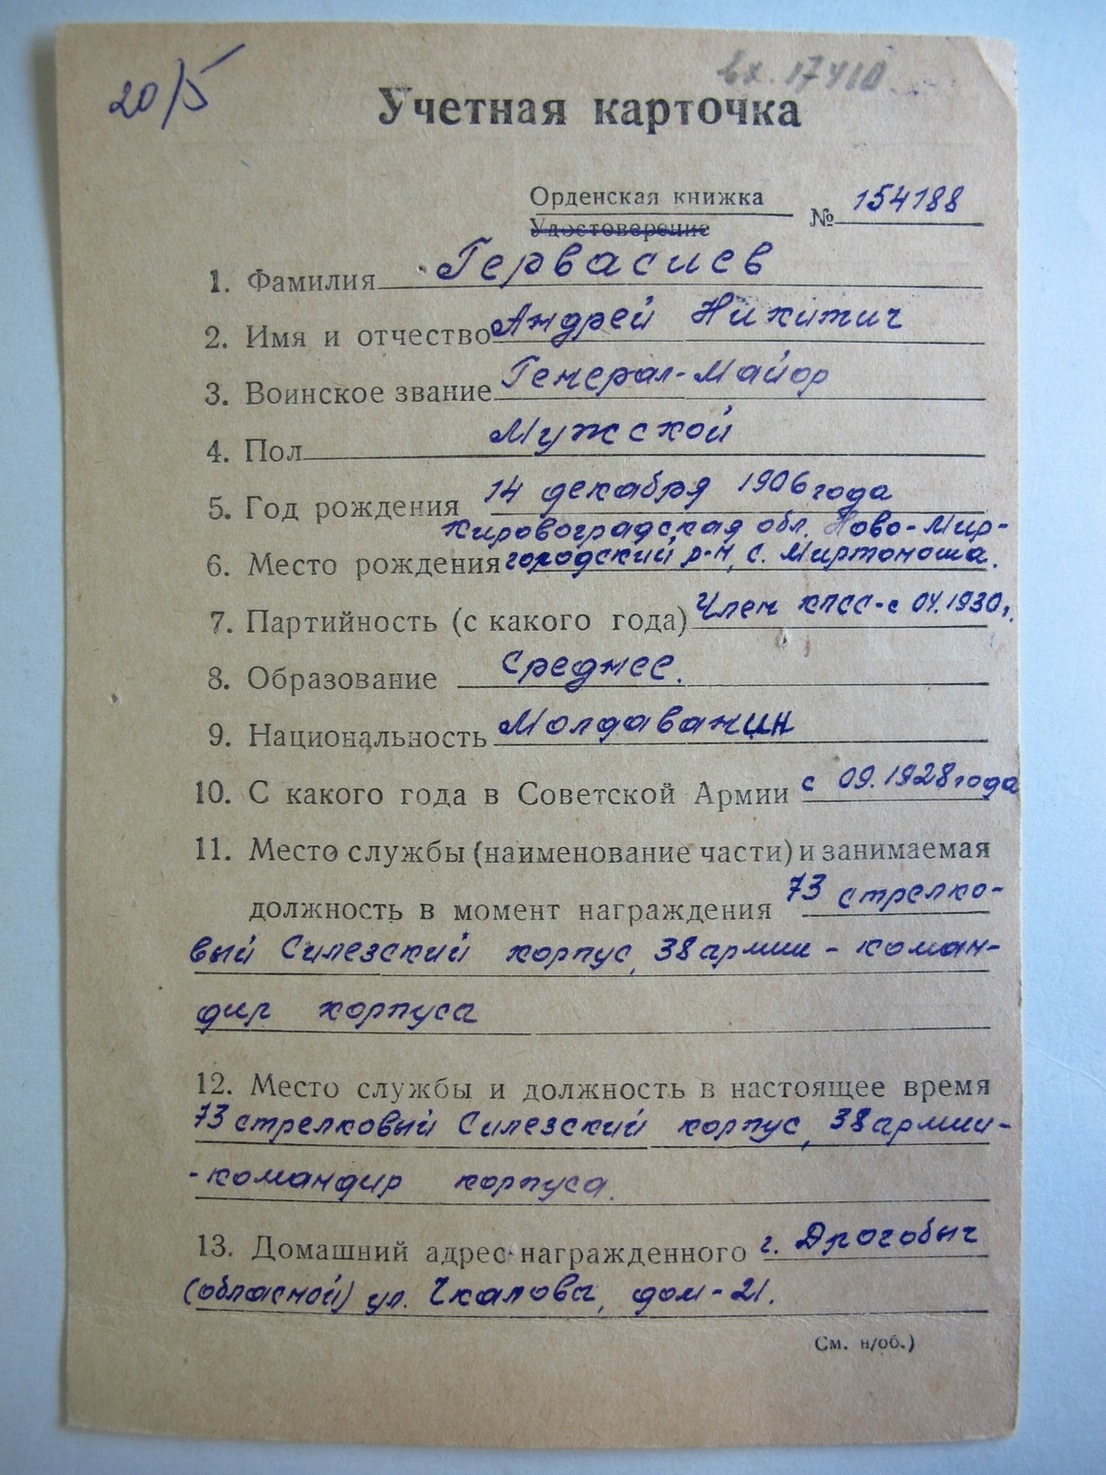 20/5
вх. 17410
Учетная карточка
Орденская книжка
Удостоверение
№ 154188
1. Фамилия Гервасиев
2. Имя и отчество Андрей Никитич
3. Воинское звание Генерал-Майор
4. Пол Мужской
5. Год рождения 14 декабря 1906 года
Кировоградская обл. Ново-Мир-
6. Место рождения городский р-н, с. Миртоноша.
7. Партийность (с какого года) Член КПСС-с 04.1930г.
8. Образование Среднее.
9. Национальность Молдаванин
10. С какого года в Советской Армии с 09.1928 года
11. Место службы (наименование части) и занимаемая
должность в момент награждения 73 стрелко-
вый Силезский корпус, 38 армии - коман-
дир корпуса
12. Место службы и должность в настоящее время
73 стрелковый Силезский корпус, 38 армии-
-командир корпуса.
13. Домашний адрес награжденного г. Дрогобыч
(обласной) ул. Чкалова, дом-21.
См. н/об.)